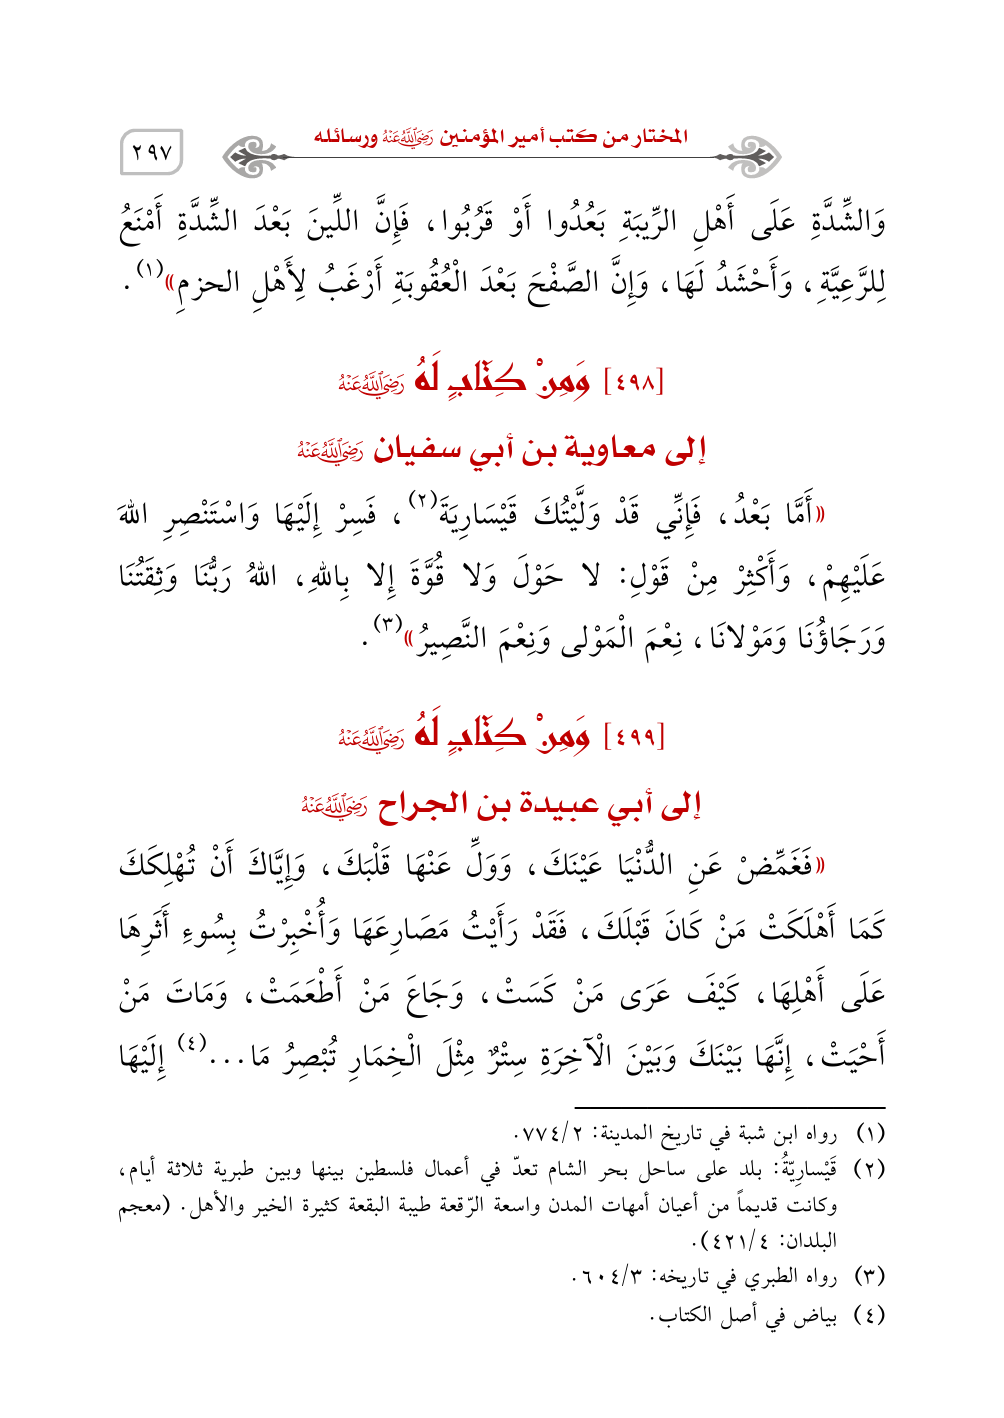 المختار من كتب أمير المؤمنين رَضِيَ اللَّهُ عَنْهُ ورسائله
٢٩٧
وَالشِّدَّةِ عَلَى أَهْلِ الرِّيبَةِ بَعُدُوا أَوْ قَرُبُوا، فَإِنَّ اللِّينَ بَعْدَ الشِّدَّةِ أَمْنَعُ
لِلرَّعِيَّةِ، وَأَحْشَدُ لَهَا، وَإِنَّ الصَّفْحَ بَعْدَ الْعُقُوبَةِ أَرْغَبُ لِأَهْلِ الحزمِ»(١).
[٤٩٨] وَمِنْ كِتَابٍ لَهُ رَضِيَ اللَّهُ عَنْهُ
إلى معاوية بن أبي سفيان رَضِيَ اللَّهُ عَنْهُ
«أَمَّا بَعْدُ، فَإِنِّي قَدْ وَلَّيْتُكَ قَيْسَارِيَةَ(٢)، فَسِرْ إِلَيْهَا وَاسْتَنْصِرِ اللهَ
عَلَيْهِمْ، وَأَكْثِرْ مِنْ قَوْلِ: لا حَوْلَ وَلا قُوَّةَ إِلا بِاللهِ، اللهُ رَبُّنَا وَثِقَتُنَا
وَرَجَاؤُنَا وَمَوْلانَا، نِعْمَ الْمَوْلى وَنِعْمَ النَّصِيرُ»(٣).
[٤٩٩] وَمِنْ كِتَابٍ لَهُ رَضِيَ اللَّهُ عَنْهُ
إلى أبي عبيدة بن الجراح رَضِيَ اللَّهُ عَنْهُ
«فَغَمِّضْ عَنِ الدُّنْيَا عَيْنَكَ، وَوَلِّ عَنْهَا قَلْبَكَ، وَإِيَّاكَ أَنْ تُهْلِكَكَ
كَمَا أَهْلَكَتْ مَنْ كَانَ قَبْلَكَ، فَقَدْ رَأَيْتُ مَصَارِعَهَا وَأُخْبِرْتُ بِسُوءِ أَثَرِهَا
عَلَى أَهْلِهَا، كَيْفَ عَرَى مَنْ كَسَتْ، وَجَاعَ مَنْ أَطْعَمَتْ، وَمَاتَ مَنْ
أَحْيَتْ، إِنَّهَا بَيْنَكَ وَبَيْنَ الْآخِرَةِ سِتْرٌ مِثْلَ الْخِمَارِ تُبْصِرُ مَا...(٤) إِلَيْهَا
(١) رواه ابن شبة في تاريخ المدينة: ٧٧٤/٢.
(٢) قَيْسارِيّةُ: بلد على ساحل بحر الشام تعدّ في أعمال فلسطين بينها وبين طبرية ثلاثة أيام،
وكانت قديماً من أعيان أمهات المدن واسعة الرّقعة طيبة البقعة كثيرة الخير والأهل. (معجم
البلدان: ٤٢١/٤).
(٣) رواه الطبري في تاريخه: ٦٠٤/٣.
(٤) بياض في أصل الكتاب.